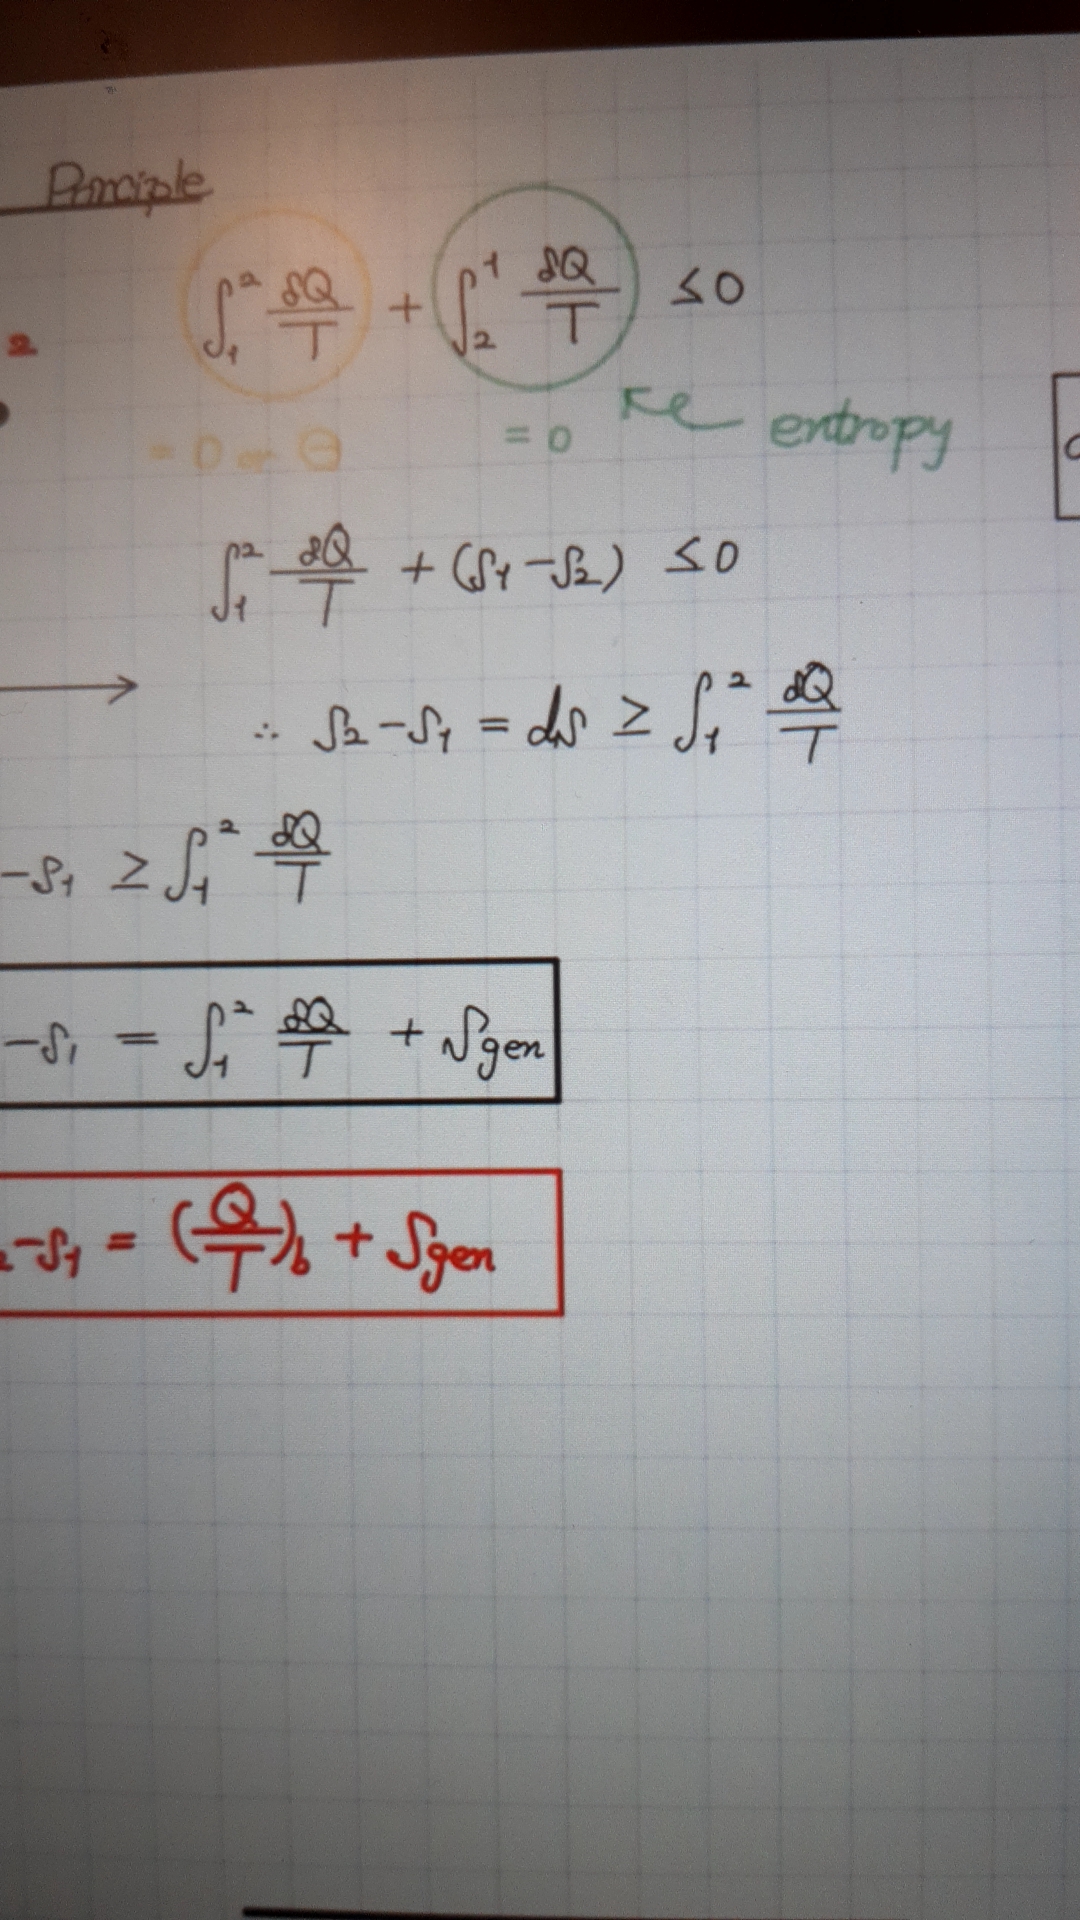 Principle
2
∫₁² δQ/T + ∫₂¹ δQ/T ≤ 0
= 0 or ⊖
= 0
entropy
∫₁² δQ/T + (S₁ - S₂) ≤ 0
→
∴ S₂ - S₁ = dS ≥ ∫₁² δQ/T
- S₁ ≥ ∫₁² δQ/T
- S₁ = ∫₁² δQ/T + Sgen
₂ - S₁ = (Q/T)b + Sgen